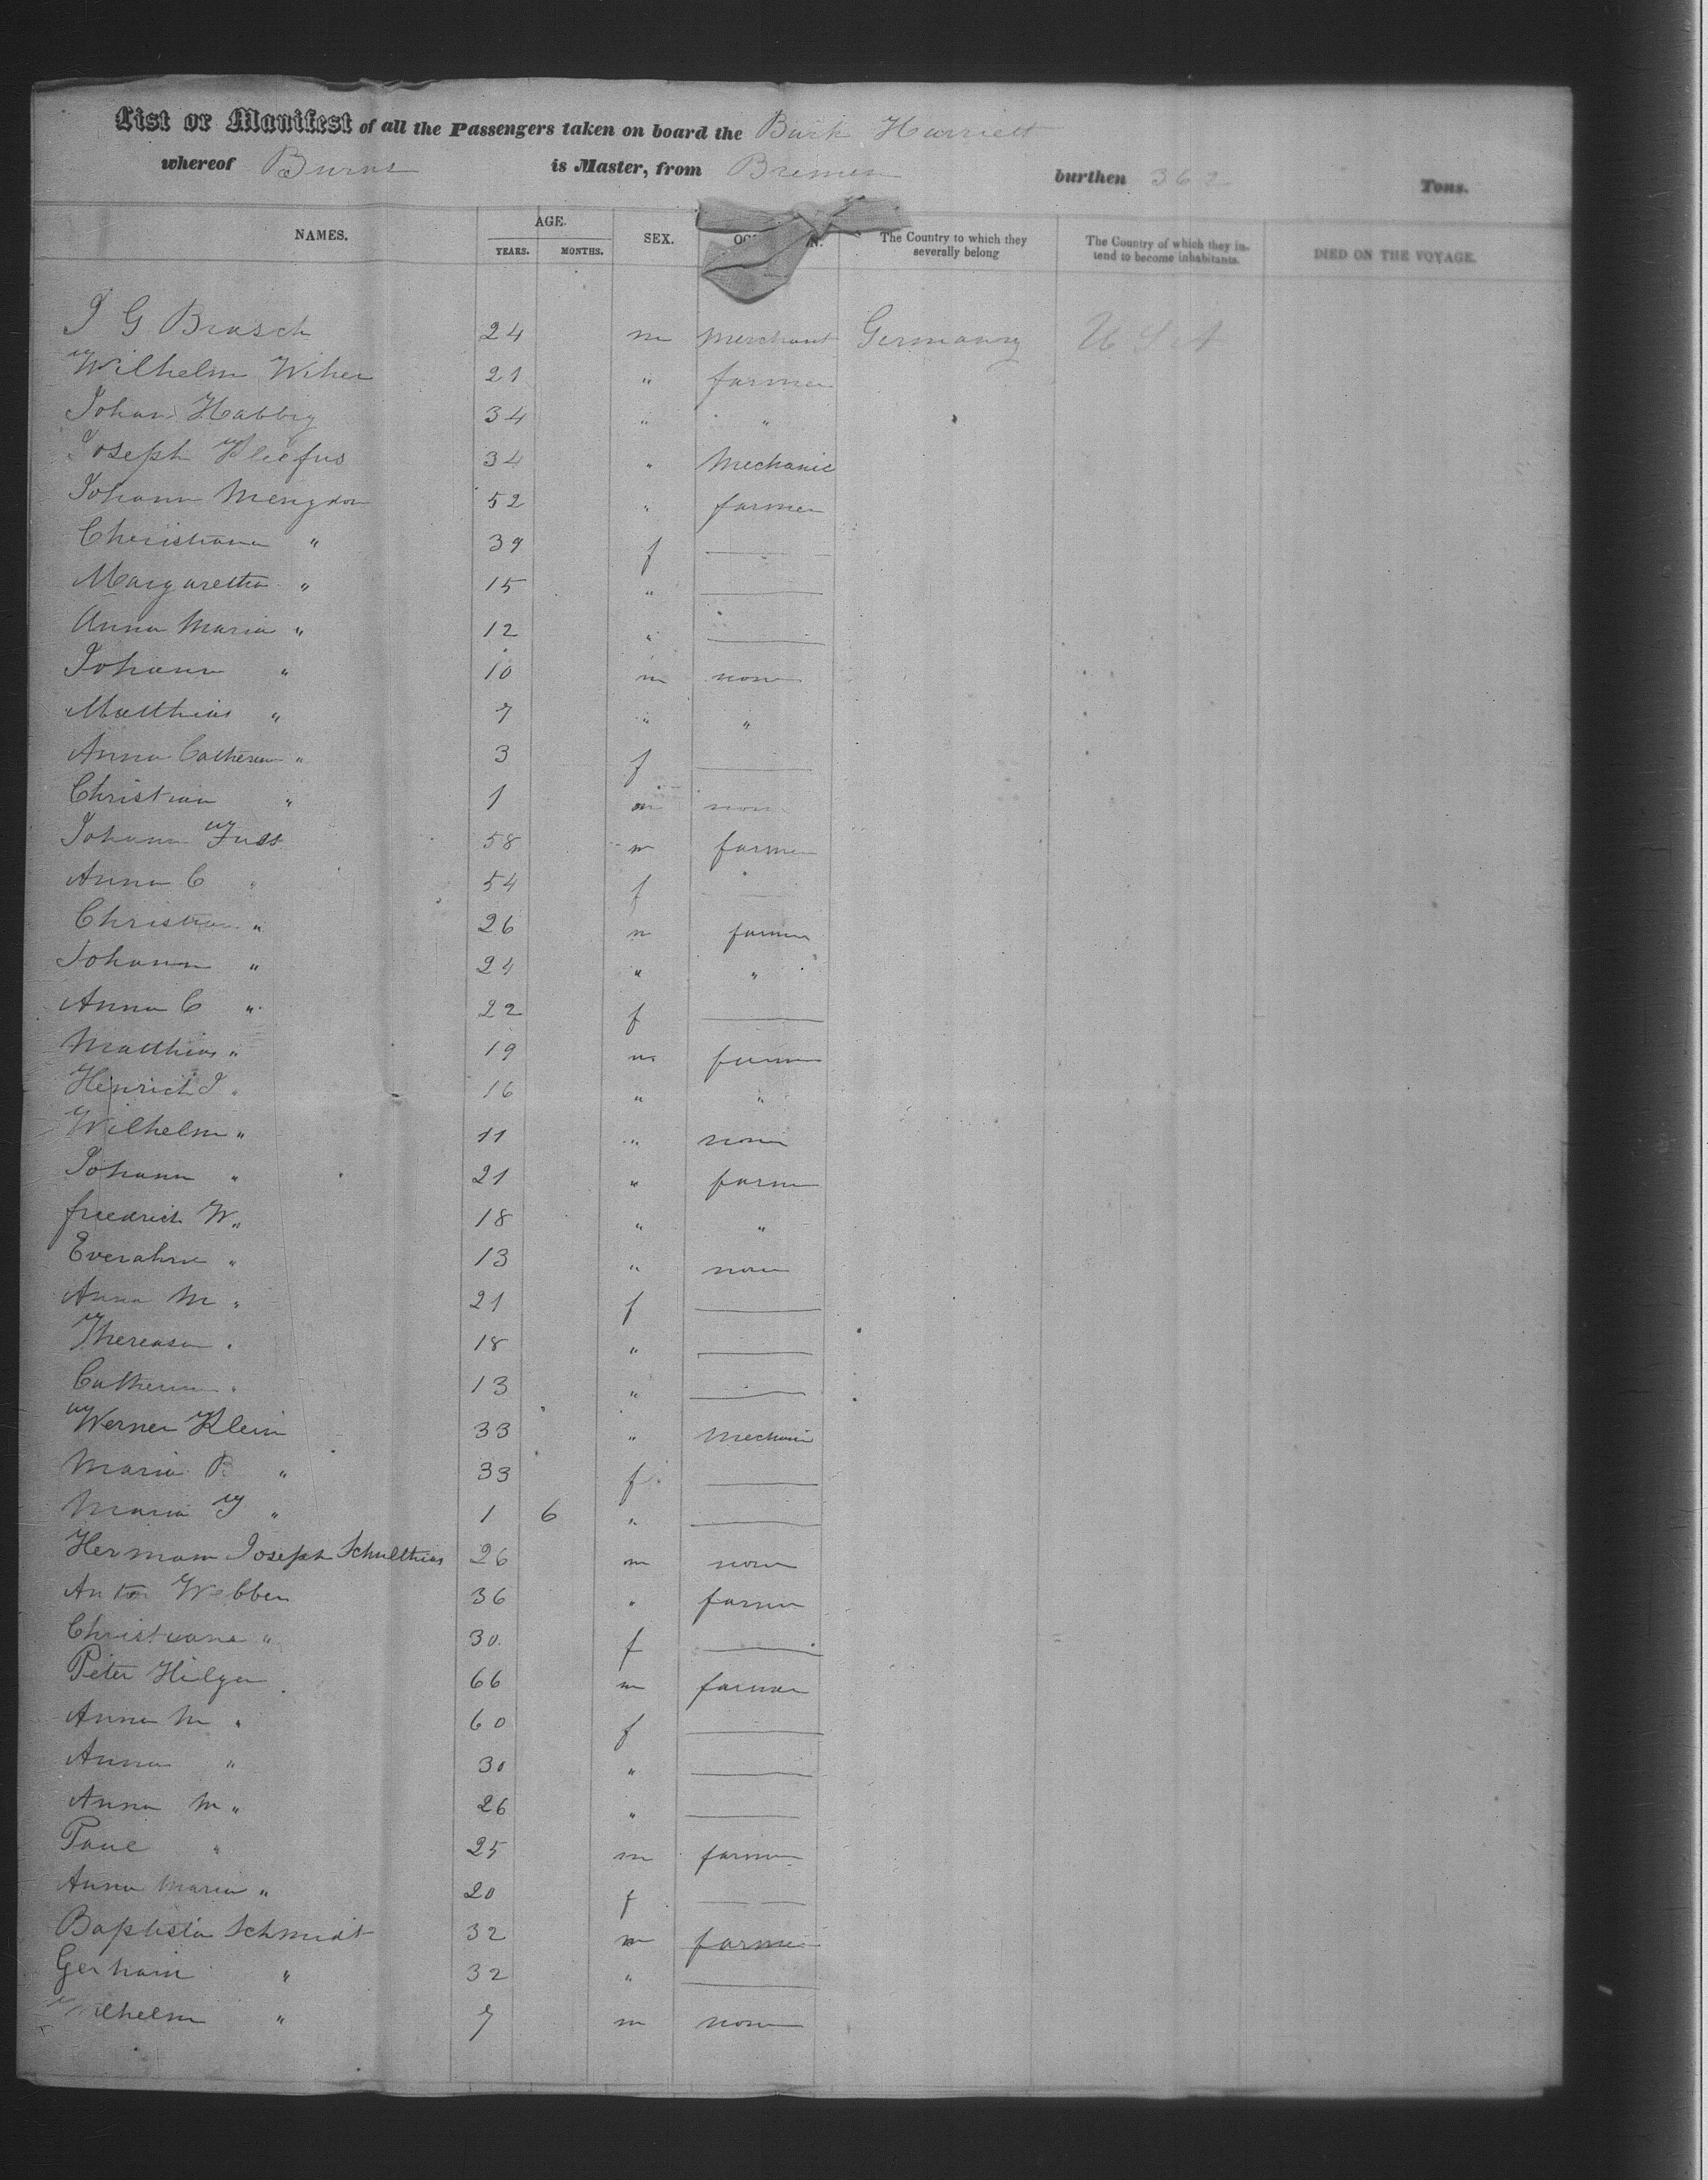 List or Manifest of all the Passengers taken on board the Bark Harriett
whereof Burns is Master, from Bremen burthen 362 Tons.
NAMES. AGE. YEARS. MONTHS. SEX. The Country to which they severally belong The Country of which they intend to become inhabitants. DIED ON THE VOYAGE.
J G Brasch 24 m Merchant Germany U S A
Wilhelm Wiher 21 " farmer
Johan Habbig 34 " "
Joseph Kleefus 34 " Mechanic
Johann Mengdon 52 " farmer
Christiana " 39 f —
Margaretha " 15 " —
Anna Maria " 12 " —
Johann " 10 m none
Matthias " 7 " "
Anna Catherina " 3 f —
Christian " 1 m none
Johann Fuss 58 m farmer
Anna C " 54 f —
Christian " 26 m farmer
Johann " 24 " "
Anna C " 22 f —
Matthias " 19 m farmer
Heinrich J " 16 " "
Wilhelm " 11 " none
Johann " 21 " farmer
friedrich W " 18 " "
13 " none
Anna M " 21 f —
Thereasa " 18 " —
Catherina " 13 " —
Werner Klein 33 " Mechanic
Maria B " 33 f —
Maria " 1 6 " —
Hermann Joseph Schulthias 26 m none
Anton Webber 36 " farmer
Christiana " 30 f —
Peter Hilger 66 m farmer
Anna M " 60 f —
Anna " 30 " —
Anna M " 26 " —
Paul " 25 m farmer
Anna Maria " 20 f —
Baptista Schmidt 32 m farmer
Gerhain " 32 " —
Wilhelm " 7 m none